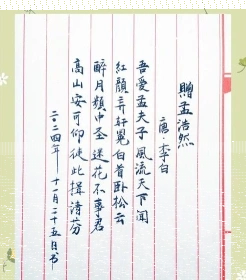 贈孟浩然
唐·李白
吾愛孟夫子 風流天下聞
紅顏弃軒冕白首卧松云
醉月頻中圣迷花不事君
高山安可仰徒此揖清芬
二〇二四年 十一月二十五日书